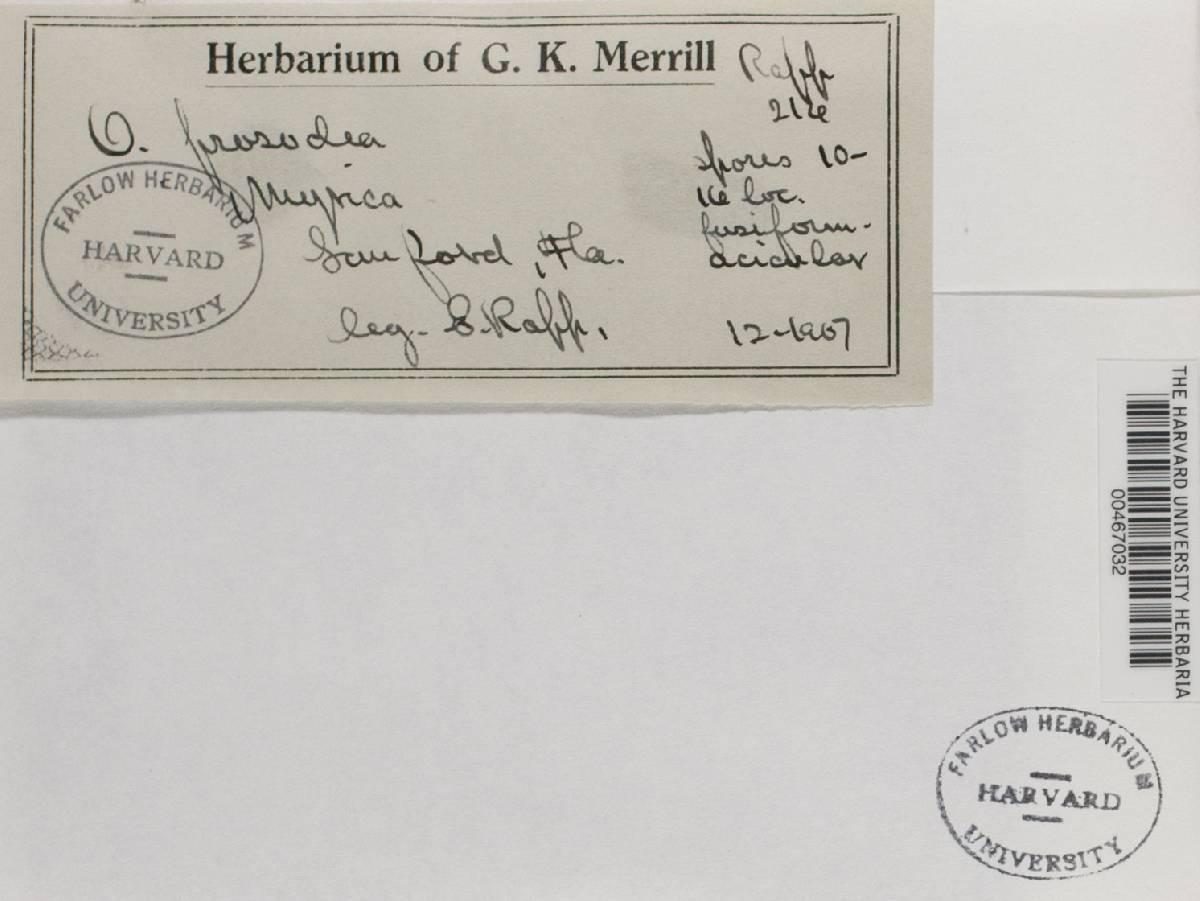 Herbarium of G. K. Merrill
Rapp
216
O. prosodea
Myrica
Sanford, Fla.
leg. S. Rapp.
spores 10-
16 loc.
fusiform-
acicular
12-1907
FARLOW HERBARIUM
HARVARD
UNIVERSITY
THE HARVARD UNIVERSITY HERBARIA
00467032
FARLOW HERBARIUM
HARVARD
UNIVERSITY